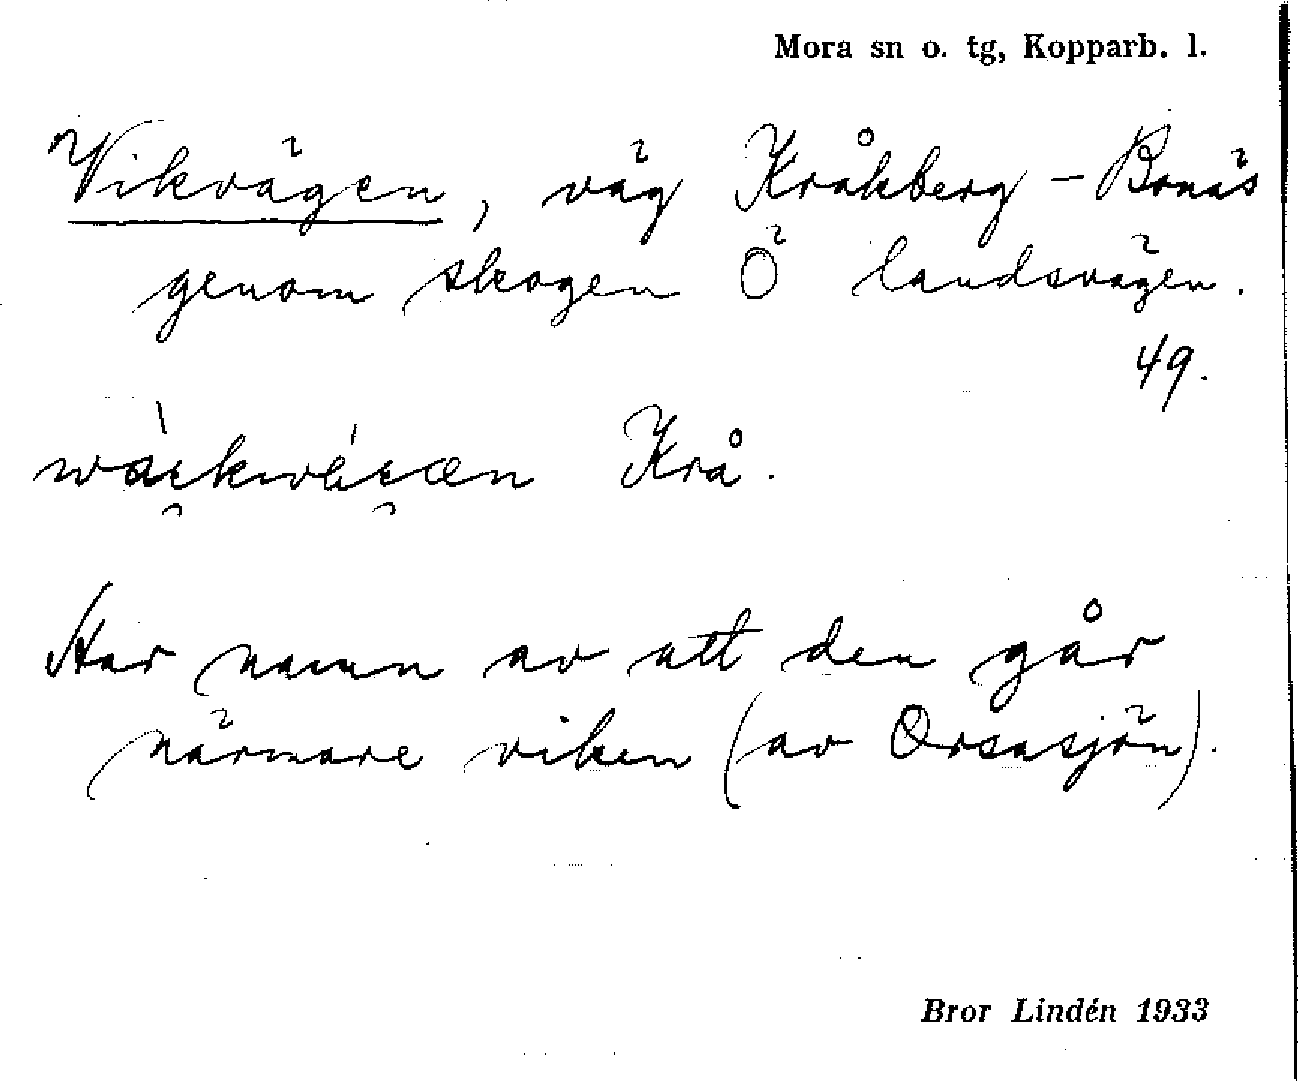 Mora sn o. tg, Kopparb. l.
Vikvägen, väg Kråkberg - Bonäs
genom skogen Ö landsvägen.
49.
Krå.
Har namn av att den går
närmare viken (av Orsasjön).
Bror Lindén 1933